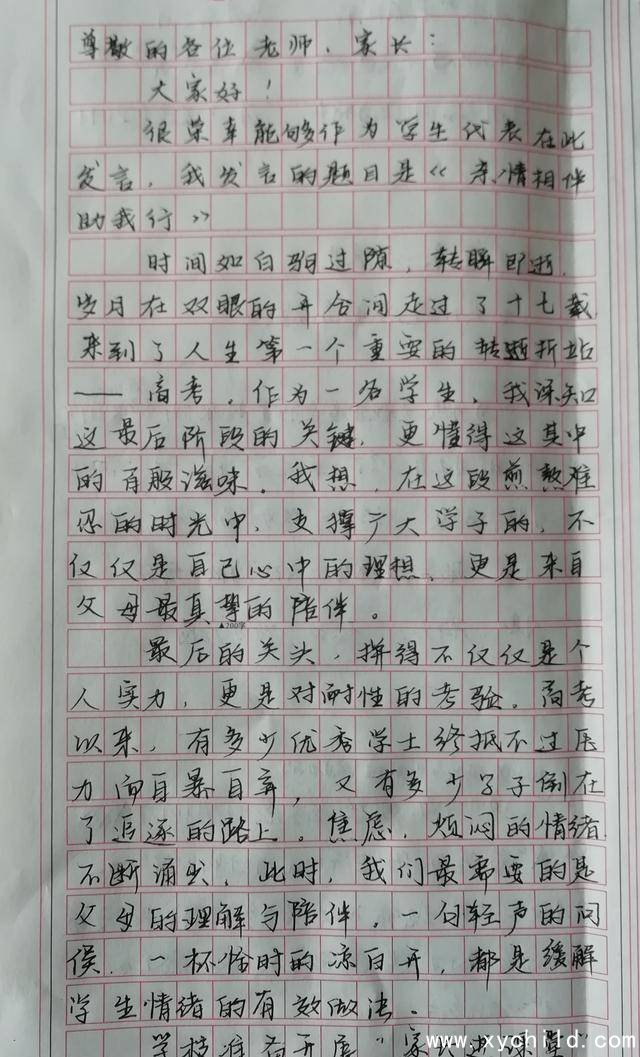 尊敬的各位老师、家长：
大家好！
很荣幸能够作为学生代表在此
发言，我发言的题目是《亲情相伴
助我行》
时间如白驹过隙，转瞬即逝，
岁月在双眼的开合间走过了十七载
来到了人生第一个重要的转折站
——高考，作为一名学生，我深知
这最后阶段的关键，更懂得这其中
的百般滋味。我想，在这段煎熬难
忍的时光中，支撑广大学子的，不
仅仅是自己心中的理想，更是来自
父母最真挚的陪伴。
▲200字
最后的关头，拼得不仅仅是个
人实力，更是对耐性的考验。高考
以来，有多少优秀学士终抵不过压
力而自暴自弃，又有多少学子倒在
了追逐的路上。焦虑，烦闷的情绪
不断涌出，此时，我们最需要的是
父母的理解与陪伴，一句轻声的问
候，一杯恰时的凉白开，都是缓解
学生情绪的有效做法。
学校准备开展"家长进
www.xychild.com